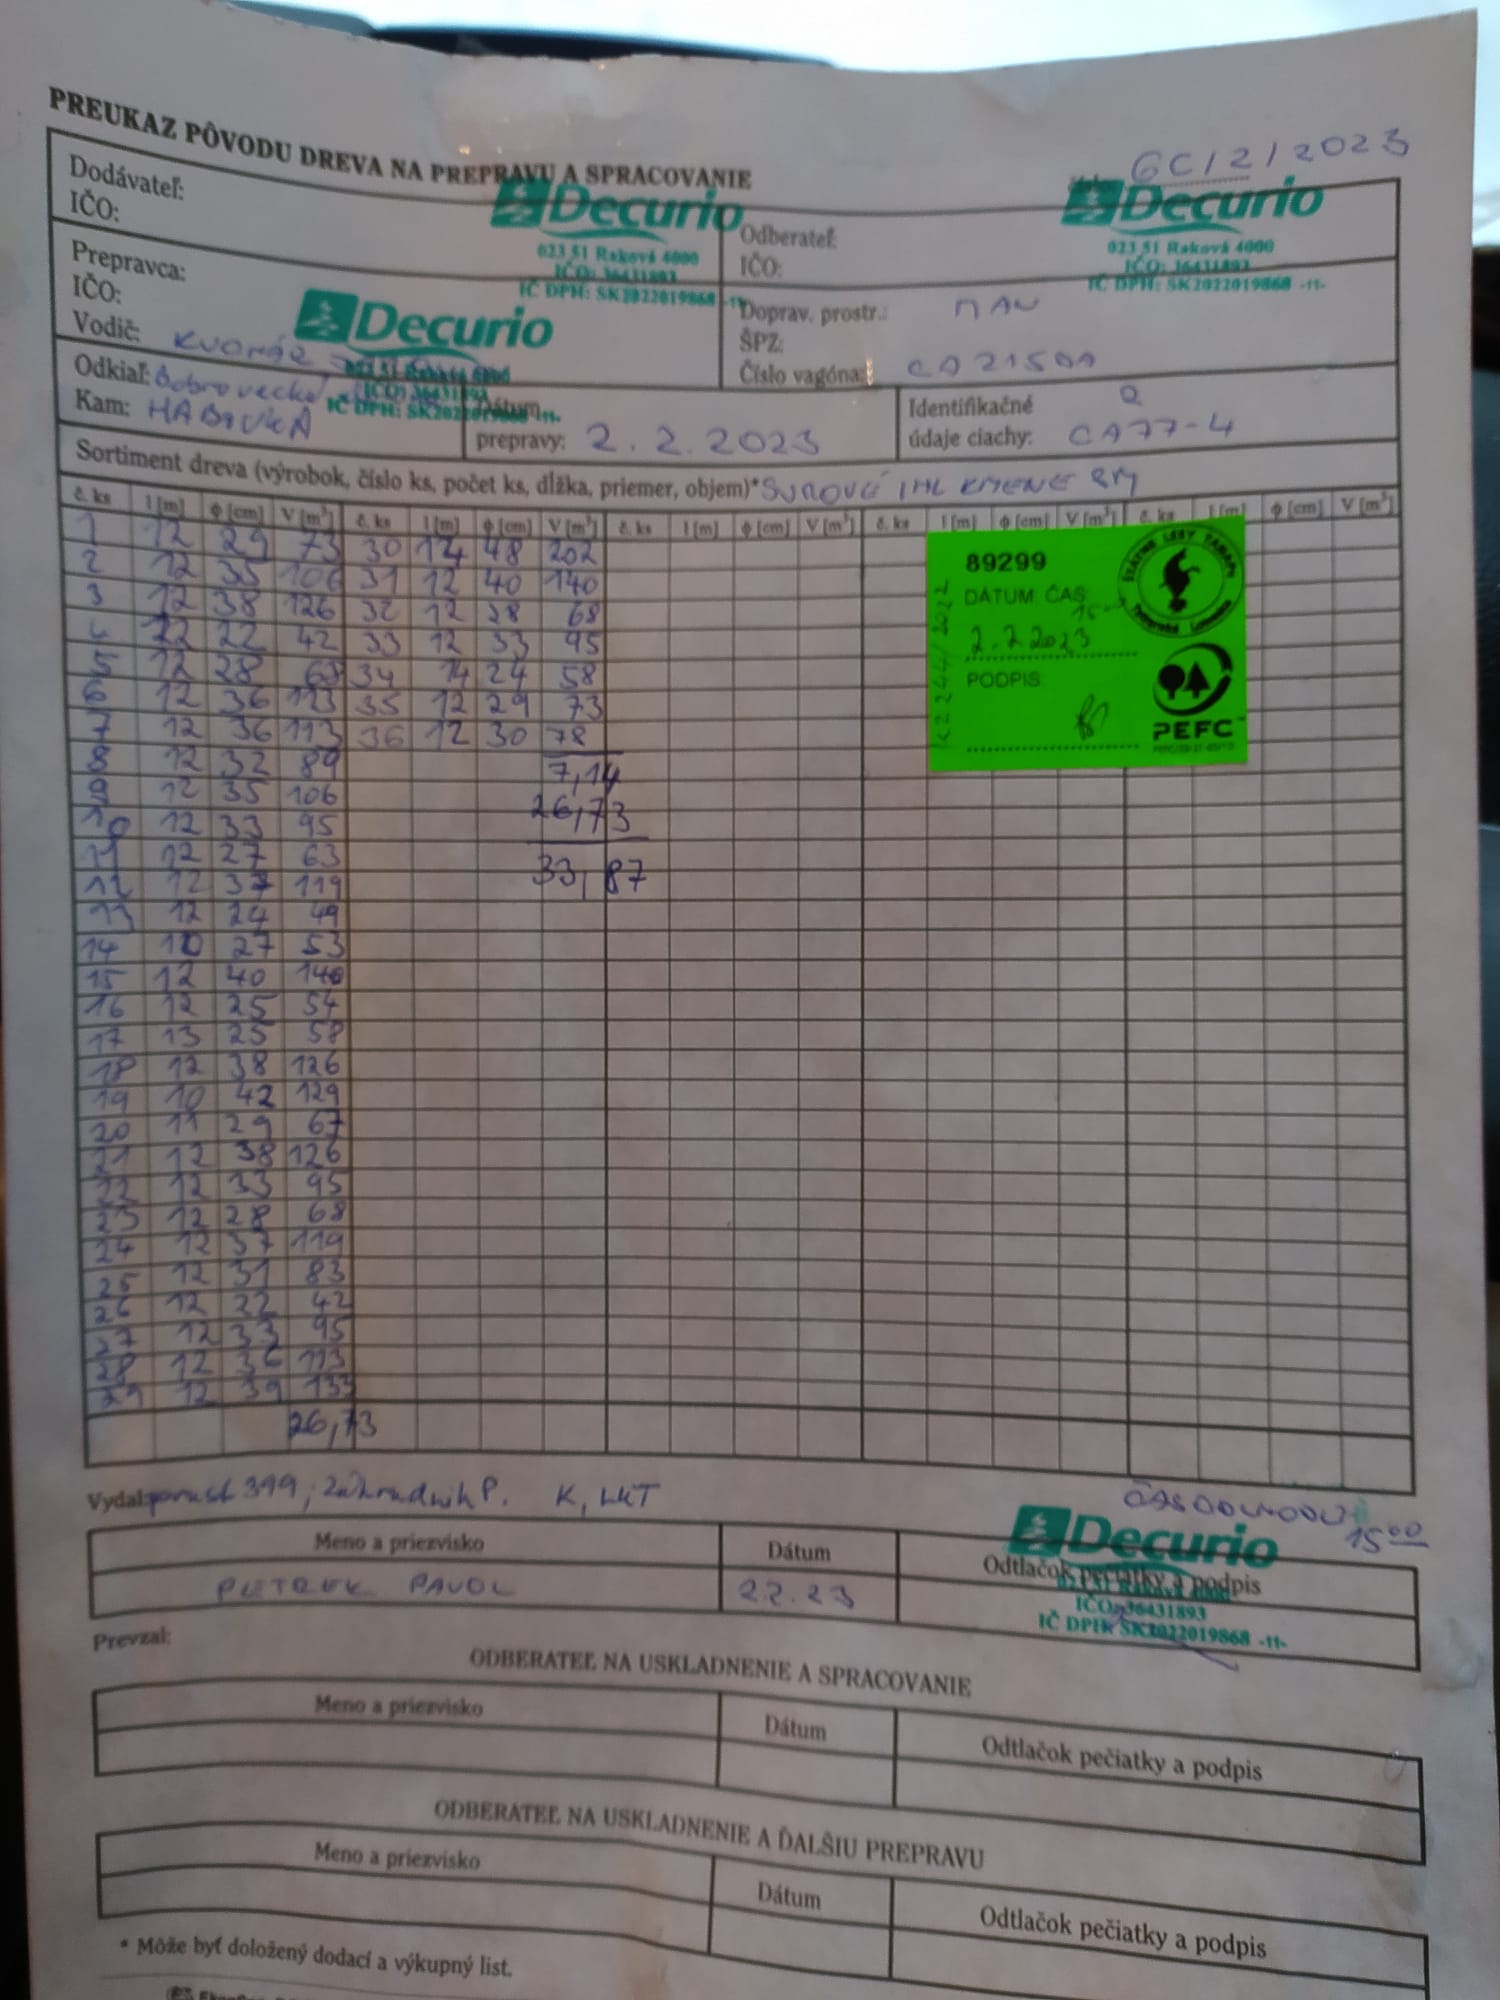 PREUKAZ PÔVODU DREVA NA PREPRAVU A SPRACOVANIE
GC/2/2023
Dodávateľ:
IČO:
Decurio
023 51 Raková 4000
IČO: 36431893
IČ DPH: SK2022019868 -11-
Odberateľ:
IČO:
Decurio
023 51 Raková 4000
IČO: 36431893
IČ DPH: SK2022019868 -11-
Prepravca:
IČO:
Vodič:
Decurio
IČO: 36431893
IČ DPH: SK2022019868 -11-
Doprav. prostr.: MAN
ŠPZ:
Číslo vagóna: CA215DA
Odkiaľ: Bobrovecká
Kam: HABOVKA
Dátum
prepravy: 2.2.2023
Identifikačné
údaje ciachy: CA77-4
Sortiment dreva (výrobok, číslo ks, počet ks, dĺžka, priemer, objem)* SUROVÉ IHL KMENE
č. ks l [m] ϕ [cm] V [m³] č. ks l [m] ϕ [cm] V [m³] č. ks l [m] ϕ [cm] V [m³] č. ks l [m] ϕ [cm] V [m³] č. ks l [m] ϕ [cm] V [m³]
1 12 29 73 30 12 48 202
2 12 35 106 31 12 40 140
3 12 38 126 32 12 28 68
4 12 22 42 33 12 33 95
5 12 28 68 34 14 24 58
6 12 36 113 35 12 29 73
7 12 36 113 36 12 30 78
8 12 32 89 7,14
9 12 35 106 26,73
10 12 33 95
11 12 27 63 33,87
12 12 37 119
13 12 24 49
14 10 27 53
15 12 40 140
16 12 25 54
17 13 25 58
18 12 38 126
19 10 42 129
20 11 29 67
21 12 38 126
22 12 33 95
23 12 28 68
24 12 37 119
25 12 31 83
26 12 22 42
27 12 33 95
28 12 36 113
29 12 39 133
26,73
89299
DÁTUM ČAS
15⁰⁰
2.2.2023
PODPIS
ŠTÁTNE LESY TANAPU
Tatranská Lomnica
PEFC
Vydal: porast 399, Záhradník P. K, LKT
15⁰⁰
Meno a priezvisko Dátum Odtlačok pečiatky a podpis
PETREK PAVOL 2.2.23
Decurio
IČO: 36431893
IČ DPH: SK2022019868 -11-
Prevzal:
ODBERATEĽ NA USKLADNENIE A SPRACOVANIE
Meno a priezvisko Dátum Odtlačok pečiatky a podpis
ODBERATEĽ NA USKLADNENIE A ĎALŠIU PREPRAVU
Meno a priezvisko Dátum Odtlačok pečiatky a podpis
* Môže byť doložený dodací a výkupný list.